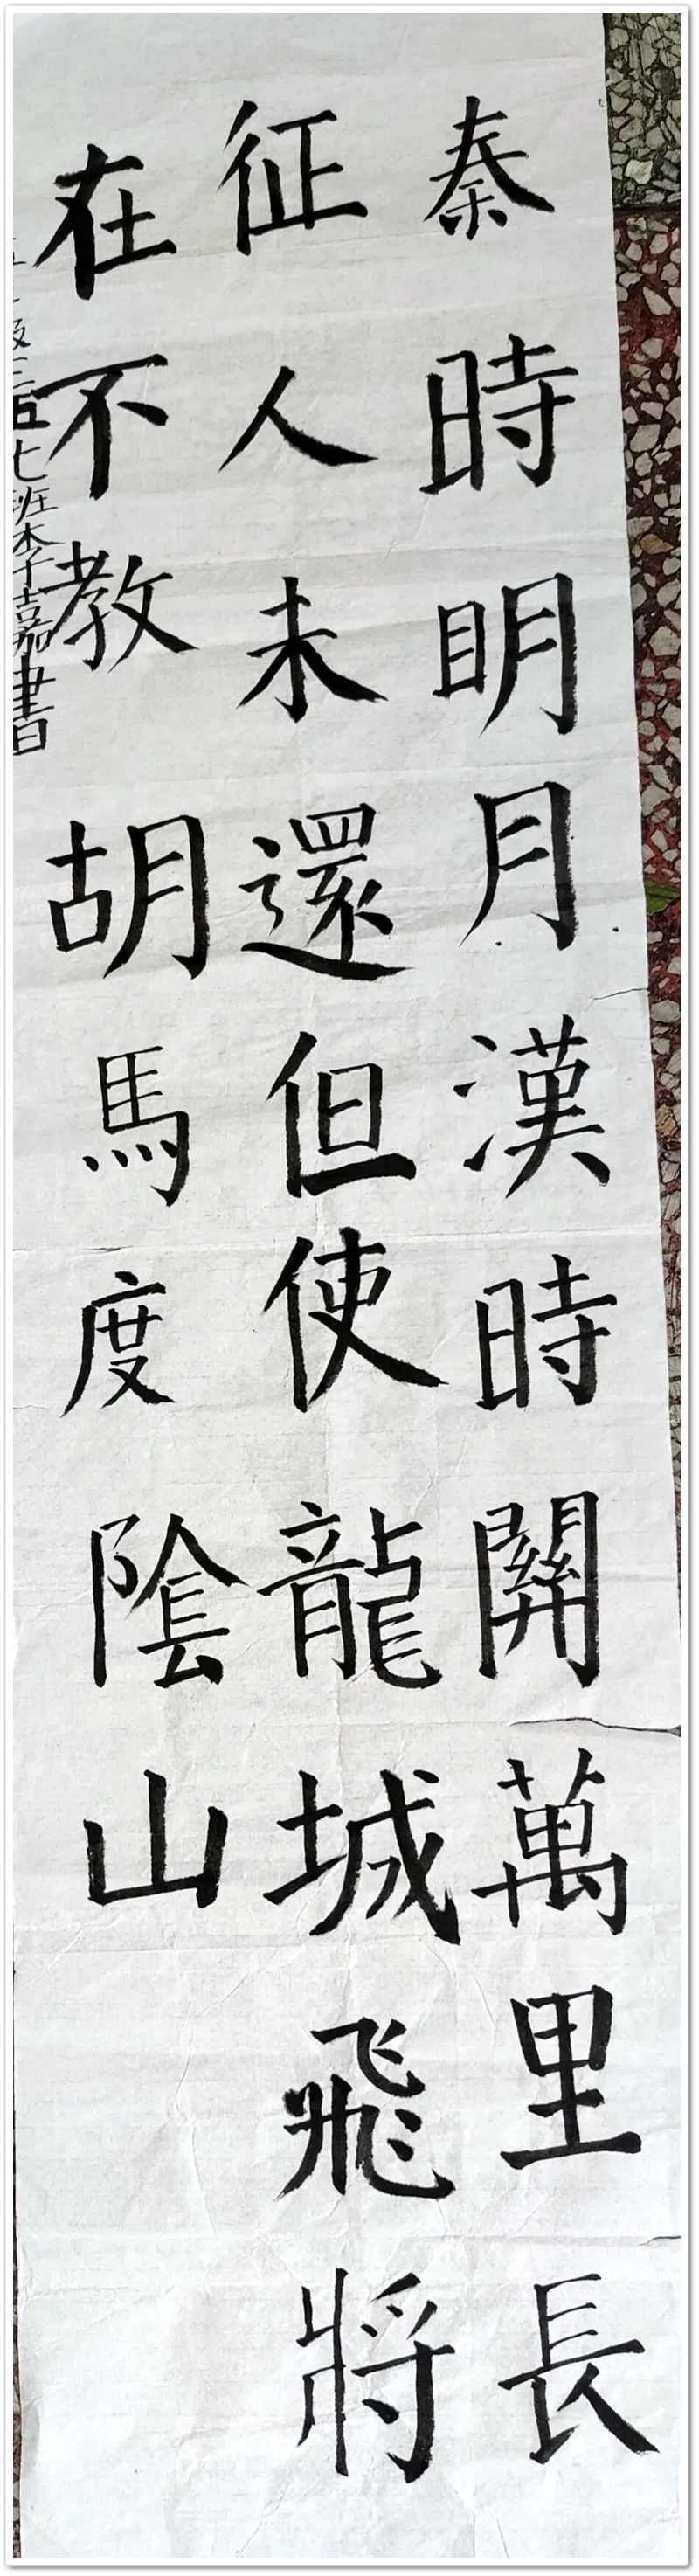 秦時明月漢時關萬里長
征人未還但使龍城飛將
在不教胡馬度陰山
級二五七班李嘉書